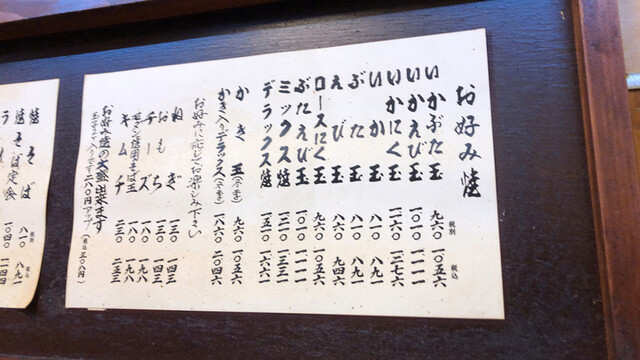 お好み焼
税別 税込
いかぶた玉 九六〇 一〇五六
いかえび玉 一〇一〇 一一一一
いかにく玉 一一六〇 一二七六
いか玉 八一〇 八九一
ぶた玉 八一〇 八九一
えび玉 八六〇 九四六
ロースにく玉 九六〇 一〇五六
ぶたえび玉 一〇一〇 一一一一
ミックス焼 一二一〇 一三三一
デラックス焼 一五一〇 一六六一
かき玉(冬季) 九六〇 一〇五六
かき入りデラックス(冬季) 一八六〇 二〇四六
お好みに応じてお楽しみ下さい
ねぎ 一三〇 一四三
おもち 一三〇 一四三
チーズ 一八〇 一九八
モダン焼用そば玉 一八〇 一九八
キムチ 二三〇 二五三
お好み焼の大盛出来ます
入ります二八〇円アップ(税込三〇八円)
税別 税込
焼そば 八一〇 八九一
焼そば定食 一〇四〇 一一四四